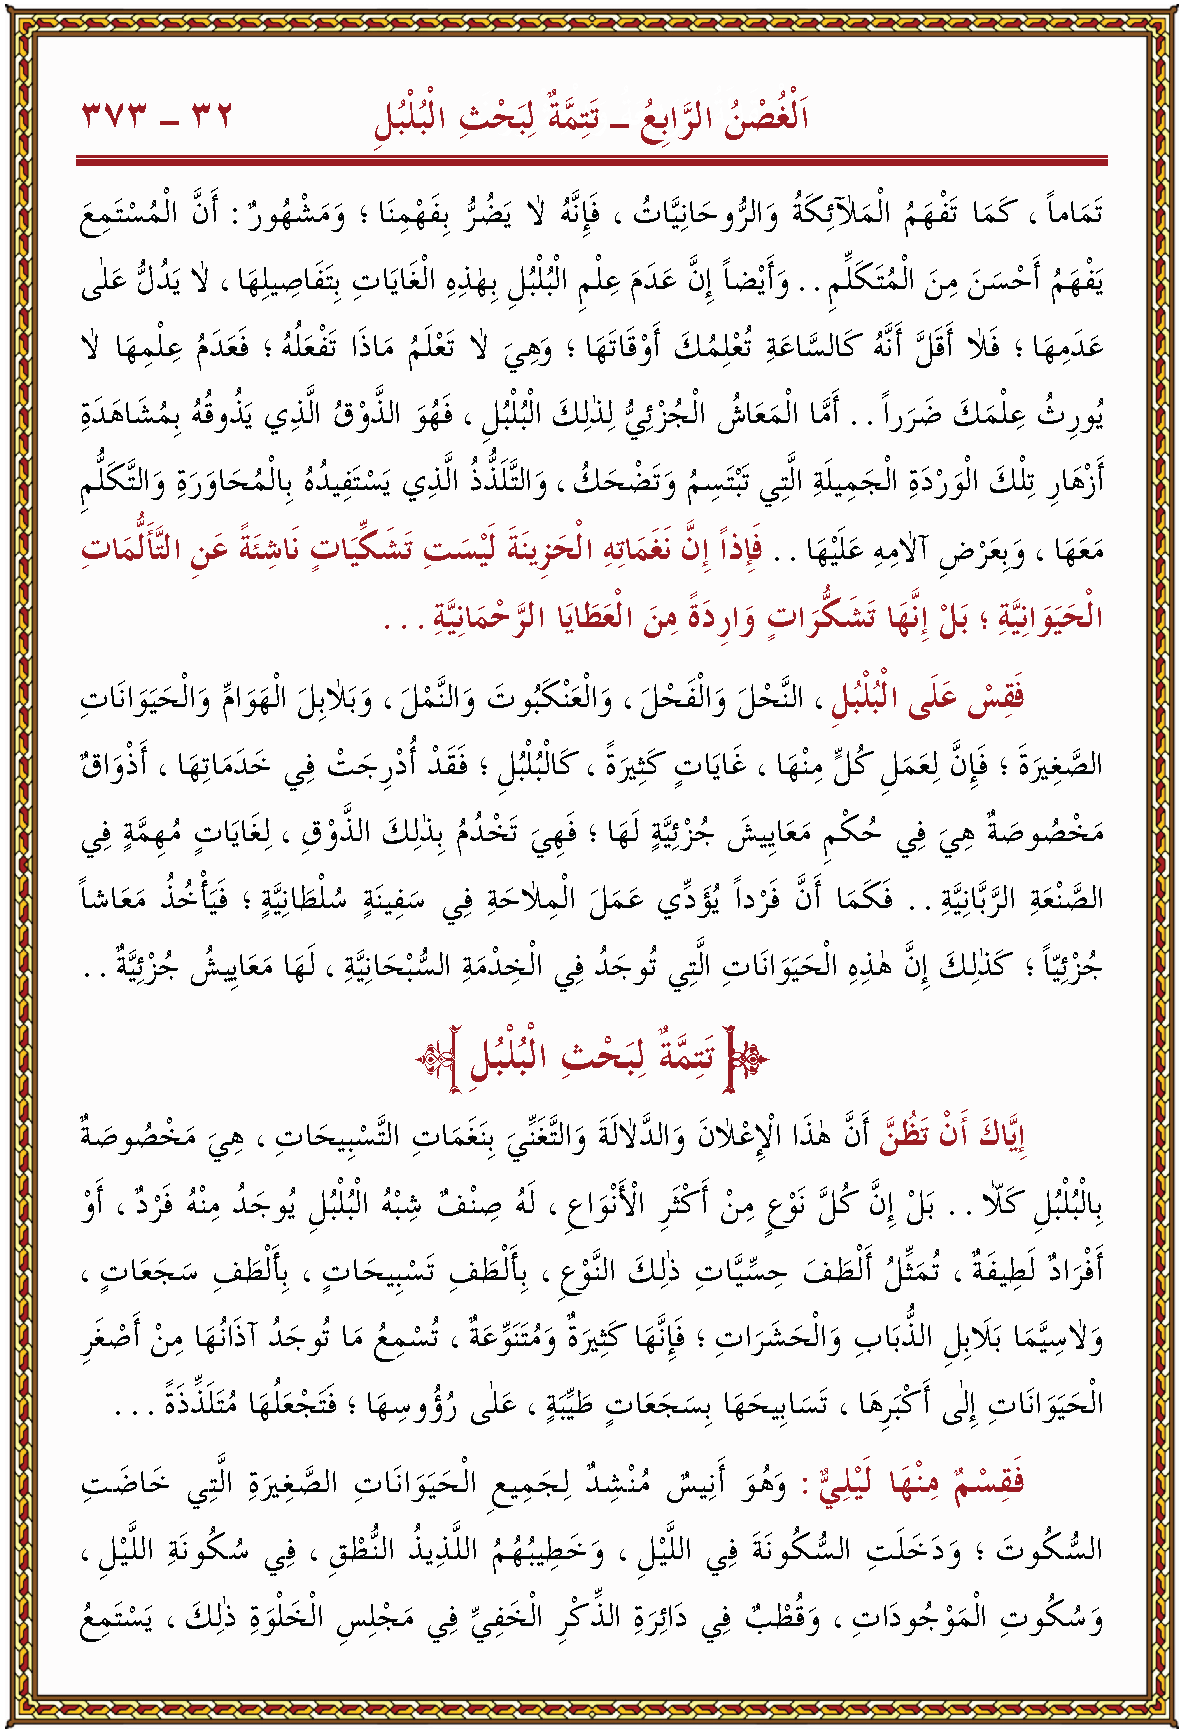 اَلْغُصْنُ الرَّابِعُ ـ تَتِمَّةٌ لِبَحْثِ الْبُلْبُلِ ٣٢ ـ ٣٧٣
تَمَاماً ، كَمَا تَفْهَمُ الْمَلٰٓئِكَةُ وَالرُّوحَانِيَّاتُ ، فَإِنَّهُ لاٰ يَضُرُّ بِفَهْمِنَا ؛ وَمَشْهُورٌ : أَنَّ الْمُسْتَمِعَ
يَفْهَمُ أَحْسَنَ مِنَ الْمُتَكَلِّمِ . . وَأَيْضاً إِنَّ عَدَمَ عِلْمِ الْبُلْبُلِ بِهٰذِهِ الْغَايَاتِ بِتَفَاصِيلِهَا ، لاٰ يَدُلُّ عَلٰى
عَدَمِهَا ؛ فَلاٰ أَقَلَّ أَنَّهُ كَالسَّاعَةِ تُعْلِمُكَ أَوْقَاتَهَا ؛ وَهِيَ لاٰ تَعْلَمُ مَاذَا تَفْعَلُهُ ؛ فَعَدَمُ عِلْمِهَا لاٰ
يُورِثُ عِلْمَكَ ضَرَراً . . أَمَّا الْمَعَاشُ الْجُزْئِيُّ لِذٰلِكَ الْبُلْبُلِ ، فَهُوَ الذَّوْقُ الَّذِي يَذُوقُهُ بِمُشَاهَدَةِ
أَزْهَارِ تِلْكَ الْوَرْدَةِ الْجَمِيلَةِ الَّتِي تَبْتَسِمُ وَتَضْحَكُ ، وَالتَّلَذُّذُ الَّذِي يَسْتَفِيدُهُ بِالْمُحَاوَرَةِ وَالتَّكَلُّمِ
مَعَهَا ، وَبِعَرْضِ آلاٰمِهِ عَلَيْهَا . . فَإِذاً إِنَّ نَغَمَاتِهِ الْحَزِينَةَ لَيْسَتْ تَشَكِّيَاتٍ نَاشِئَةً عَنِ التَّأَلُّمَاتِ
الْحَيَوَانِيَّةِ ؛ بَلْ إِنَّهَا تَشَكُّرَاتٍ وَارِدَةً مِنَ الْعَطَايَا الرَّحْمَانِيَّةِ . . .
فَقِسْ عَلَى الْبُلْبُلِ ، النَّحْلَ وَالْفَحْلَ ، وَالْعَنْكَبُوتَ وَالنَّمْلَ ، وَبَلاٰبِلَ الْهَوَامِّ وَالْحَيَوَانَاتِ
الصَّغِيَرةَ ؛ فَإِنَّ لِعَمَلِ كُلٍّ مِنْهَا ، غَايَاتٍ كَثِيَرةً ، كَالْبُلْبُلِ ؛ فَقَدْ أُدْرِجَتْ فِي خَدَمَاتِهَا ، أَذْوَاقٌ
مَخْصُوصَةٌ هِيَ فِي حُكْمِ مَعَايِيشَ جُزْئِيَّةٍ لَهَا ؛ فَهِيَ تَخْدُمُ بِذٰلِكَ الذَّوْقِ ، لِغَايَاتٍ مُهِمَّةٍ فِي
الصَّنْعَةِ الرَّبَّانِيَّةِ . . فَكَمَا أَنَّ فَرْداً يُؤَدِّي عَمَلَ الْمِلاٰحَةِ فِي سَفِينَةٍ سُلْطَانِيَّةٍ ؛ فَيَأْخُذُ مَعَاشاً
جُزْئِيّاً ؛ كَذٰلِكَ إِنَّ هٰذِهِ الْحَيَوَانَاتِ الَّتِي تُوجَدُ فِي الْخِدْمَةِ السُّبْحَانِيَّةِ ، لَهَا مَعَايِيشُ جُزْئِيَّةٌ . .
تَتِمَّةٌ لِبَحْثِ الْبُلْبُلِ
إِيَّاكَ أَنْ تَظُنَّ أَنَّ هٰذَا الْإِعْلاٰنَ وَالدَّلاٰلَةَ وَالتَّغَنِّيَ بِنَغَمَاتِ التَّسْبِيحَاتِ ، هِيَ مَخْصُوصَةٌ
بِالْبُلْبُلِ كَلاّٰ . . بَلْ إِنَّ كُلَّ نَوْعٍ مِنْ أَكْثَرِ الْأَنْوَاعِ ، لَهُ صِنْفٌ شِبْهُ الْبُلْبُلِ يُوجَدُ مِنْهُ فَرْدٌ ، أَوْ
أَفْرَادٌ لَطِيفَةٌ ، تُمَثِّلُ أَلْطَفَ حِسِّيَّاتِ ذٰلِكَ النَّوْعِ ، بِأَلْطَفِ تَسْبِيحَاتٍ ، بِأَلْطَفِ سَجَعَاتٍ ،
وَلاٰسِيَّمَا بَلَابِلِ الذُّبَابِ وَالْحَشَرَاتِ ؛ فَإِنَّهَا كَثِيَرةٌ وَمُتَنَوِّعَةٌ ، تُسْمِعُ مَا تُوجَدُ آذَانُهَا مِنْ أَصْغَرِ
الْحَيَوَانَاتِ إِلٰى أَكْبَرِهَا ، تَسَابِيحَهَا بِسَجَعَاتٍ طَيِّبَةٍ ، عَلٰى رُؤُوسِهَا ؛ فَتَجْعَلُهَا مُتَلَذِّذَةً . . .
فَقِسْمٌ مِنْهَا لَيْلِيٌّ : وَهُوَ أَنِيسٌ مُنْشِدٌ لِجَمِيعِ الْحَيَوَانَاتِ الصَّغِيَرةِ الَّتِي خَاضَتِ
السُّكُوتَ ؛ وَدَخَلَتِ السُّكُونَةَ فِي اللَّيْلِ ، وَخَطِيبُهُمُ اللَّذِيذُ النُّطْقِ ، فِي سُكُونَةِ اللَّيْلِ ،
وَسُكُوتِ الْمَوْجُودَاتِ ، وَقُطْبٌ فِي دَائِرَةِ الذِّكْرِ الْخَفِيِّ فِي مَجْلِسِ الْخَلْوَةِ ذٰلِكَ ، يَسْتَمِعُ